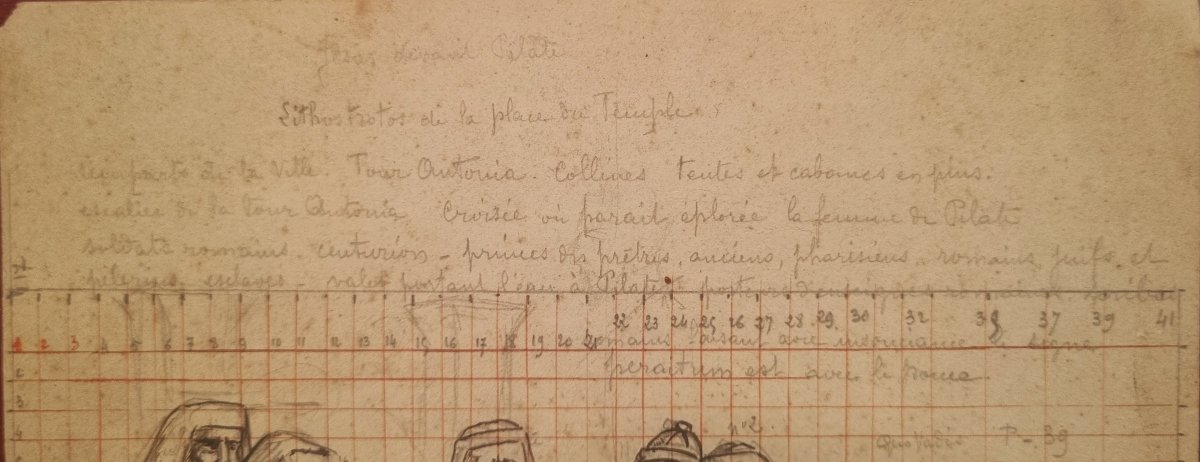 Jésus devant Pilate
Lithostrotos de la place du Temple
remparts de la Ville. Tour Antonia. Collines tentes et cabanes en plus.
escalier de la tour Antonia Croisée où parait éplorée la femme de Pilate
soldats romains. centurion - princes des prêtres, anciens, pharisiens, romains, juifs et
pèlerins, esclaves - valet portant l'eau à Pilate, porteurs d'enseignes romaines
22 23 24 25 26 27 28 29 30 32 37 39 41
1 2 3 4 5 6 7 8 9 10 11 12 13 14 15 16 17 18 19 20 21
romains faisant avec insouciance signe
2
est avec le pouce
3
4 n°2 Quo vadis P - 39
5